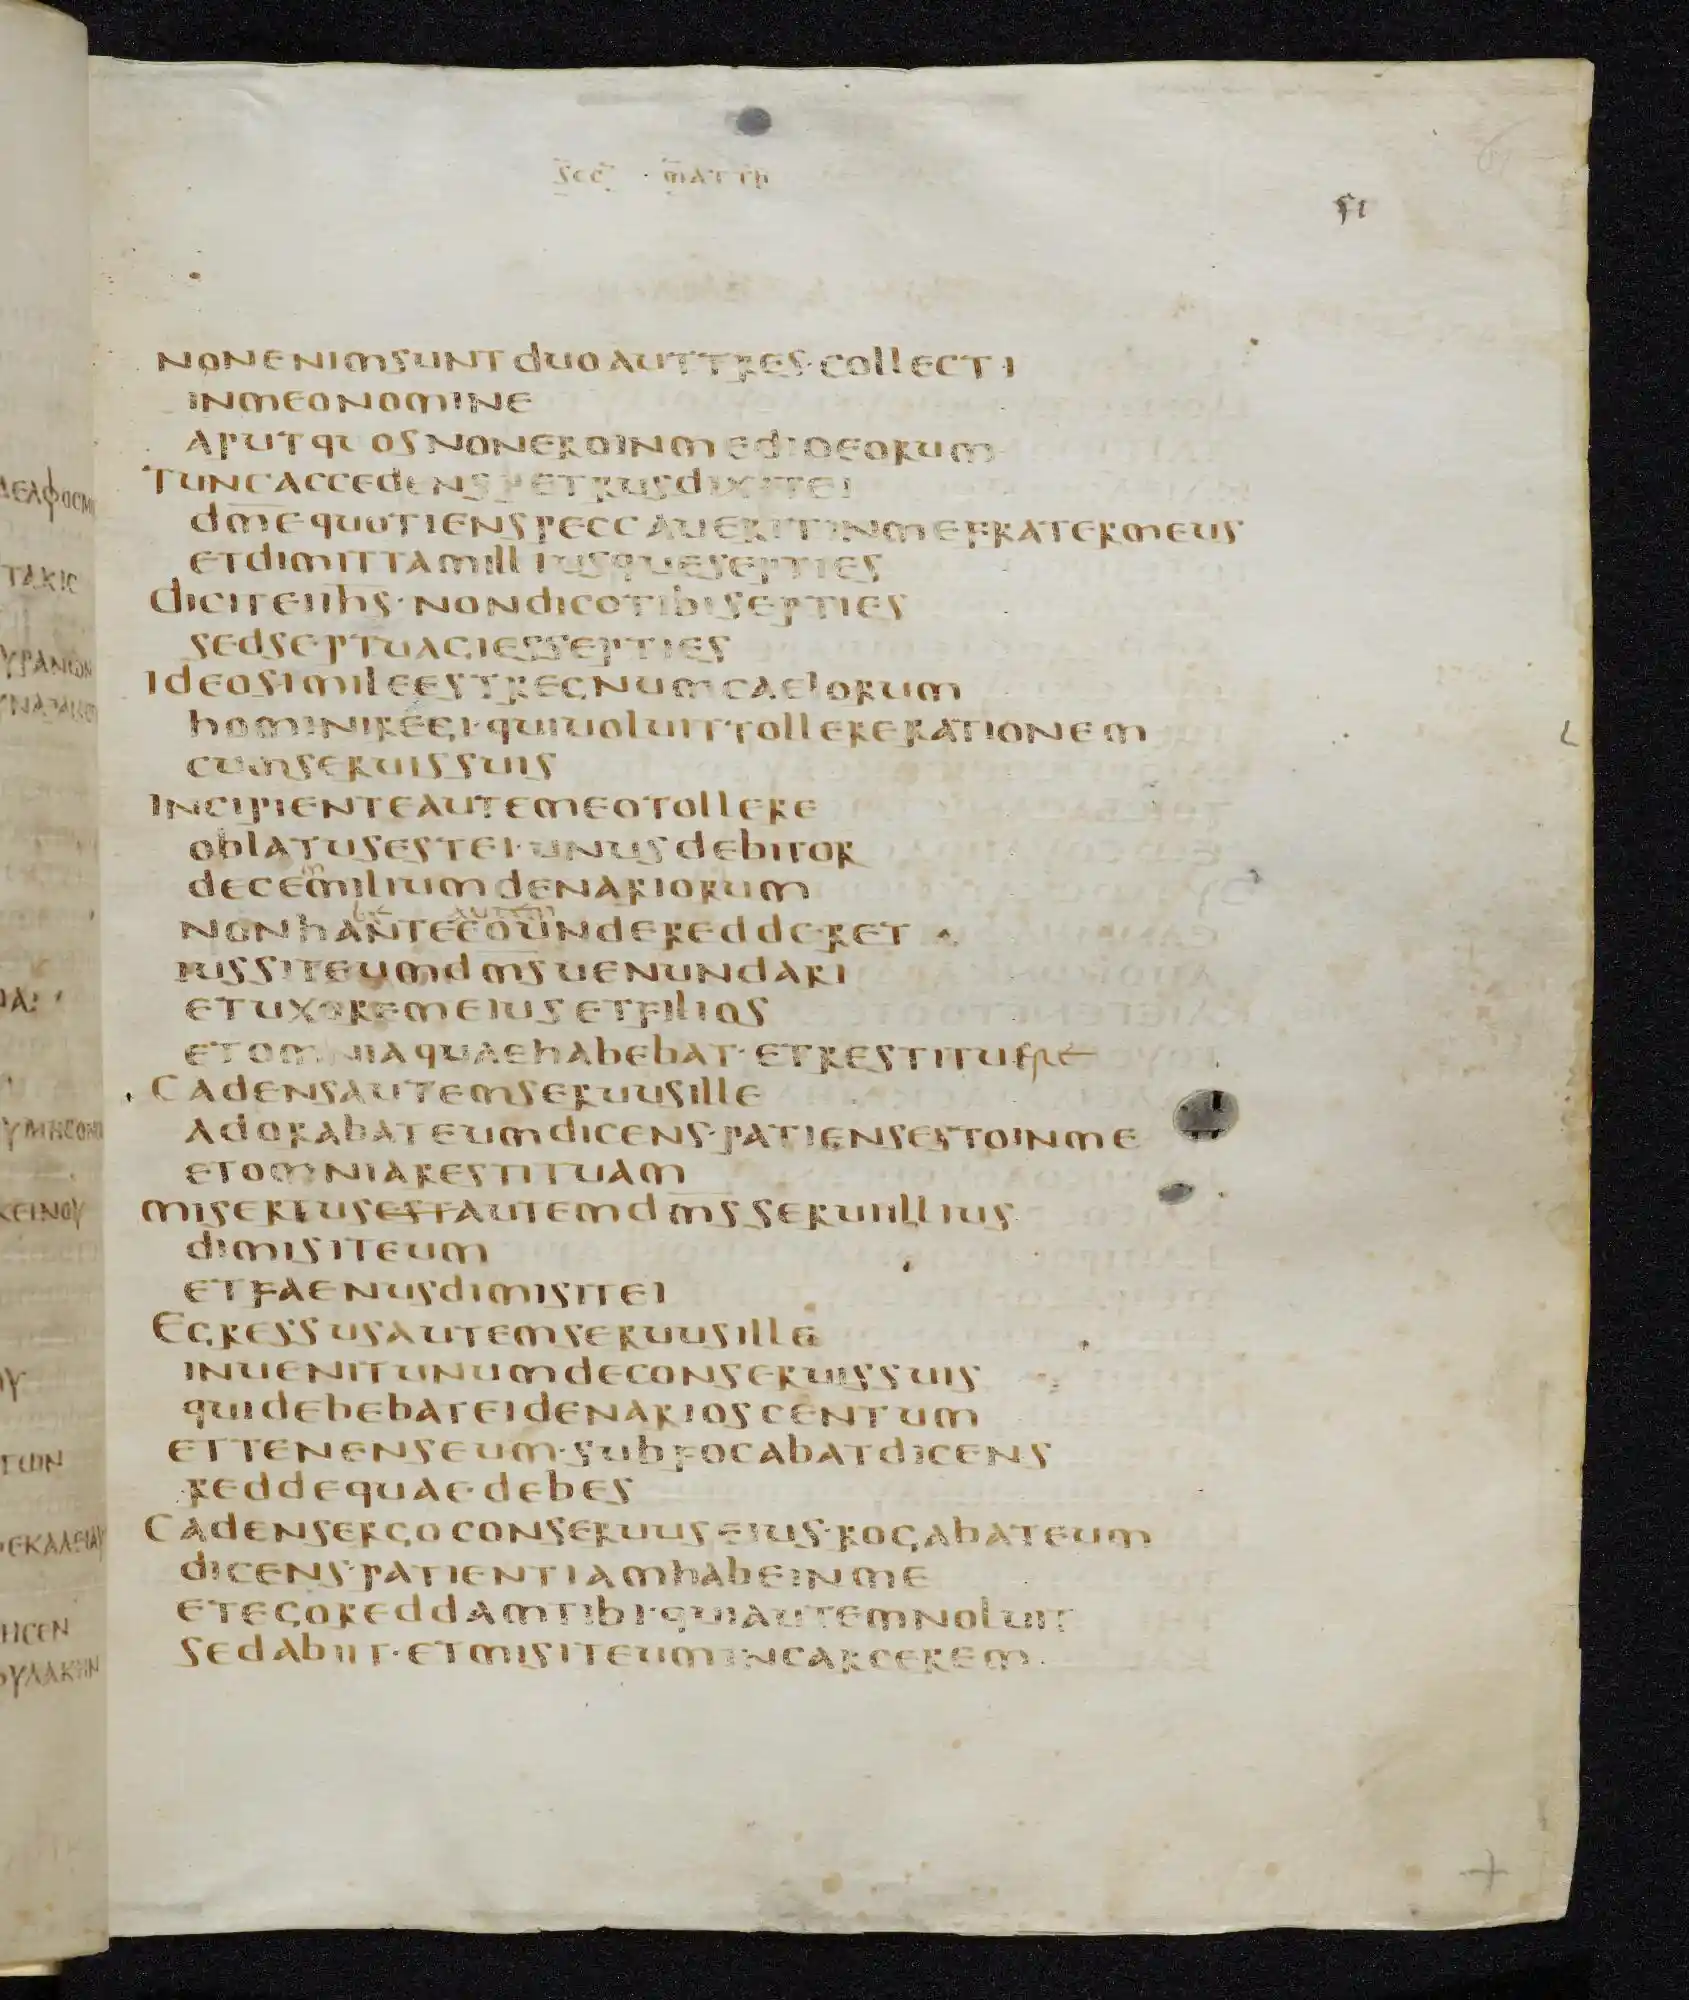 sec · matth
51
nonenimsuntduoauttres·collecti
inmeonomine
aputquosnoneroinmedioeorum
Tuncaccedenspetrusdixitei
dmequotienspeccaueritinmefratermeus
etdimittamilliusquesepties
diciteiihs·nondicotibisepties
sedseptuagiessepties
Ideosimileestregnumcaelorum
hominiregi·quiuoluittollererationem
cumseruissuis
Incipienteautemeotollere
oblatusestei·unusdebitor
decemmiliumdenariorum
nonhanteeounderedderet
autem
iussiteumdmsuenundari
etuxoremeiusetfilios
etomniaquaehabebat·etrestitui
Cadensautemseruusille
adorabateumdicens·patiensestoinme
etomniarestituam
misertusestautemdmsseruiillius
dimisiteum
etfaenusdimisitei
Egressusautemseruusille
inuenitunumdeconseruissuis
quidebebateidenarioscentum
ettenenseum·subfocabatdicens
reddequaedebes
Cadensergoconseruuseius·rogabateum
dicens·patientiamhabeinme
etegoreddamtibi·quiautemnoluit
sedabiit·etmisiteumincarcerem